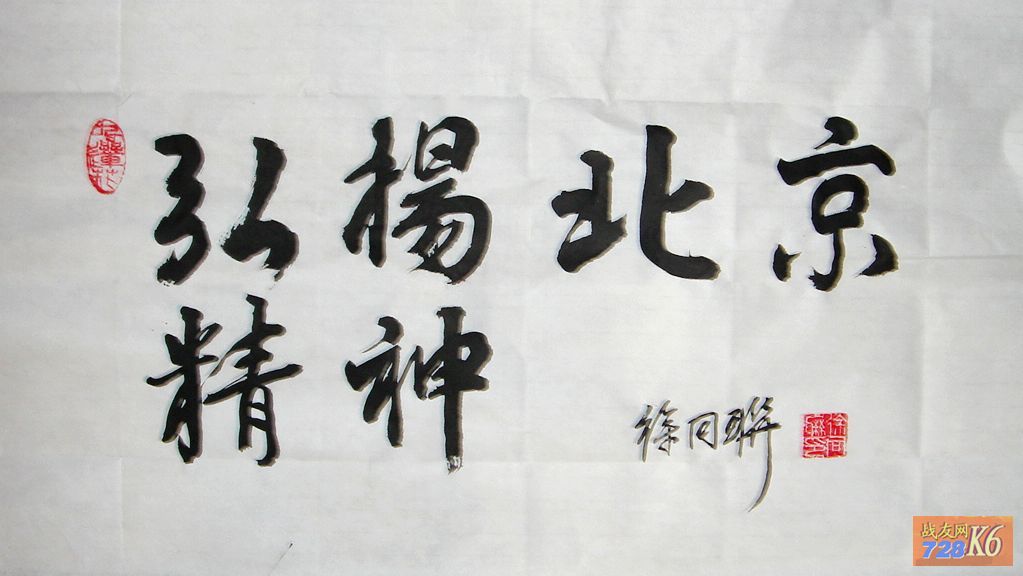 弘揚北京
精神
徐同聯
战友网
728K6